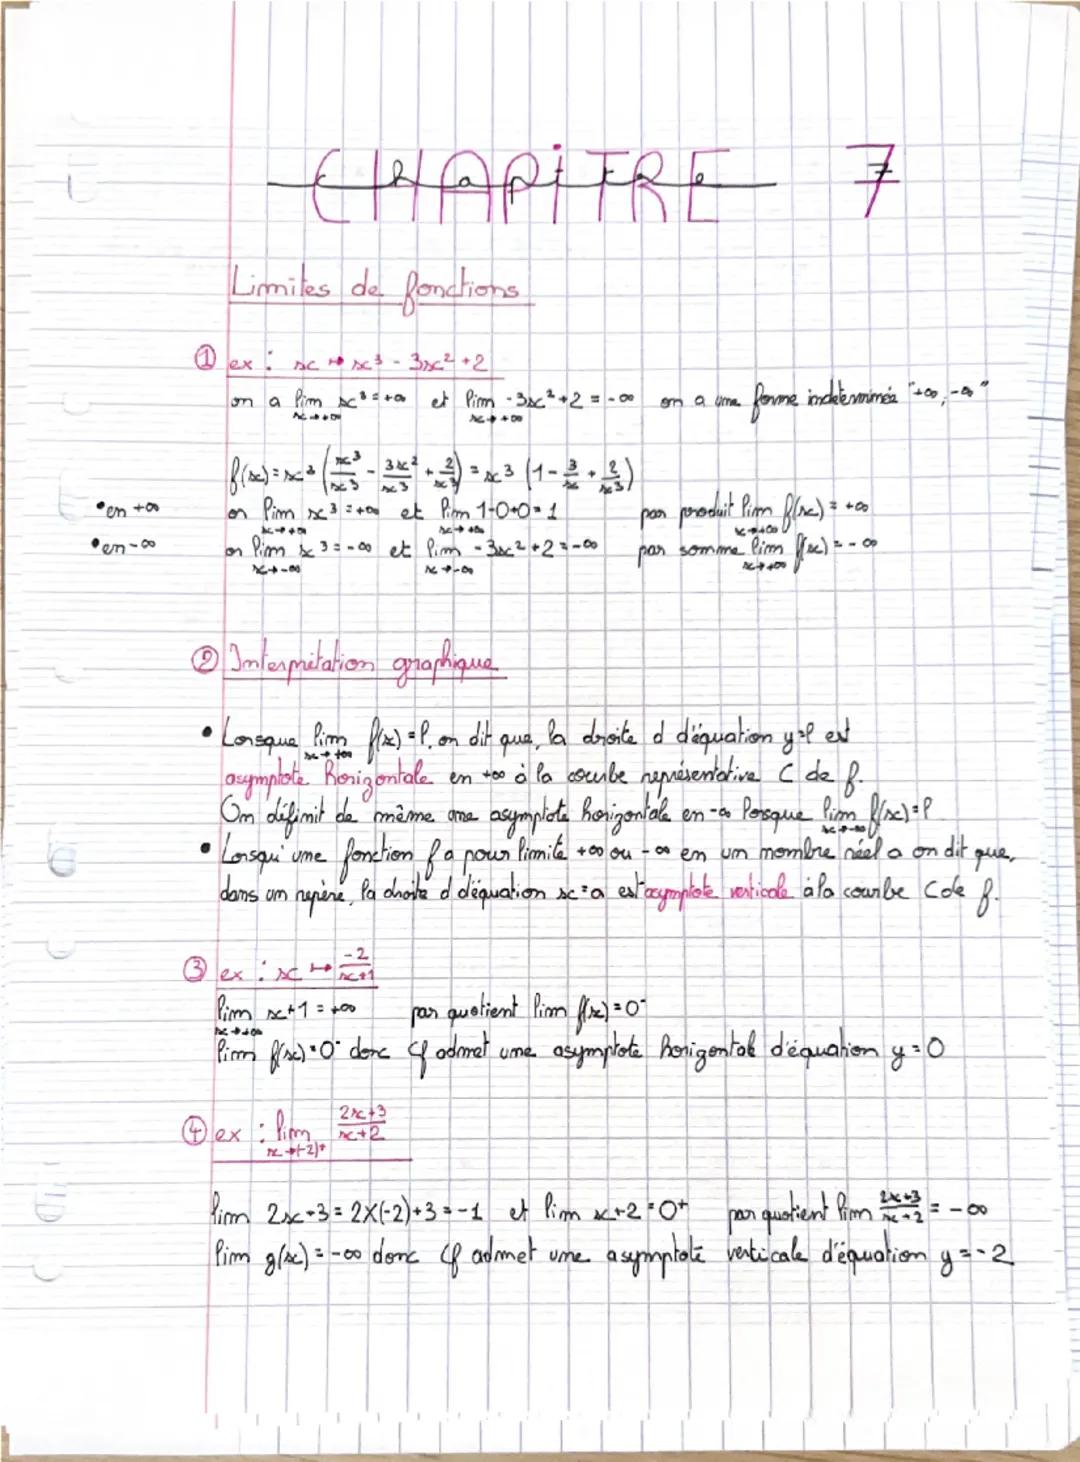 CHAPITRE 7
Limites de fonctions
① ex : x ↦ x³ - 3x² + 2
on a lim x³ = +∞ et lim -3x² + 2 = -∞ on a une forme indeterminée "+∞, -∞"
x→+∞ x→+∞
f(x) = x³ (x³/x³ - 3x²/x³ + 2/x³) = x³ (1 - 3/x + 2/x³)
• en +∞ on lim x³ = +∞ et lim 1-0+0 = 1 par produit lim f(x) = +∞
x→+∞ x→+∞ x→+∞
• en -∞ on lim x³ = -∞ et lim -3x² + 2 = -∞ par somme lim f(x) = -∞
x→-∞ x→-∞ x→+∞
② Interprétation graphique
• Lorsque lim f(x) = l, on dit que, la droite d d'équation y=l est
x→+∞
asymptote horizontale en +∞ à la courbe représentative C de f.
On définit de même une asymptote horizontale en -∞ lorsque lim f(x) = l
x→-∞
• Lorsqu'une fonction f a pour limite +∞ ou -∞ en un nombre réel a on dit que,
dans un repère, la droite d d'équation x = a est asymptote verticale à la courbe C de f.
③ ex : x ↦ -2/x+1
lim x+1 = +∞ par quotient lim f(x) = 0⁻
x→+∞
lim f(x) = 0⁻ donc Cf admet une asymptote horizontal d'équation y = 0
④ ex : lim 2x+3/x+2
x→(-2)⁺
lim 2x+3 = 2×(-2)+3 = -1 et lim x+2 = 0⁺ par quotient lim 2x+3/x+2 = -∞
lim g(x) = -∞ donc Cf admet une asymptote verticale d'équation y = -2